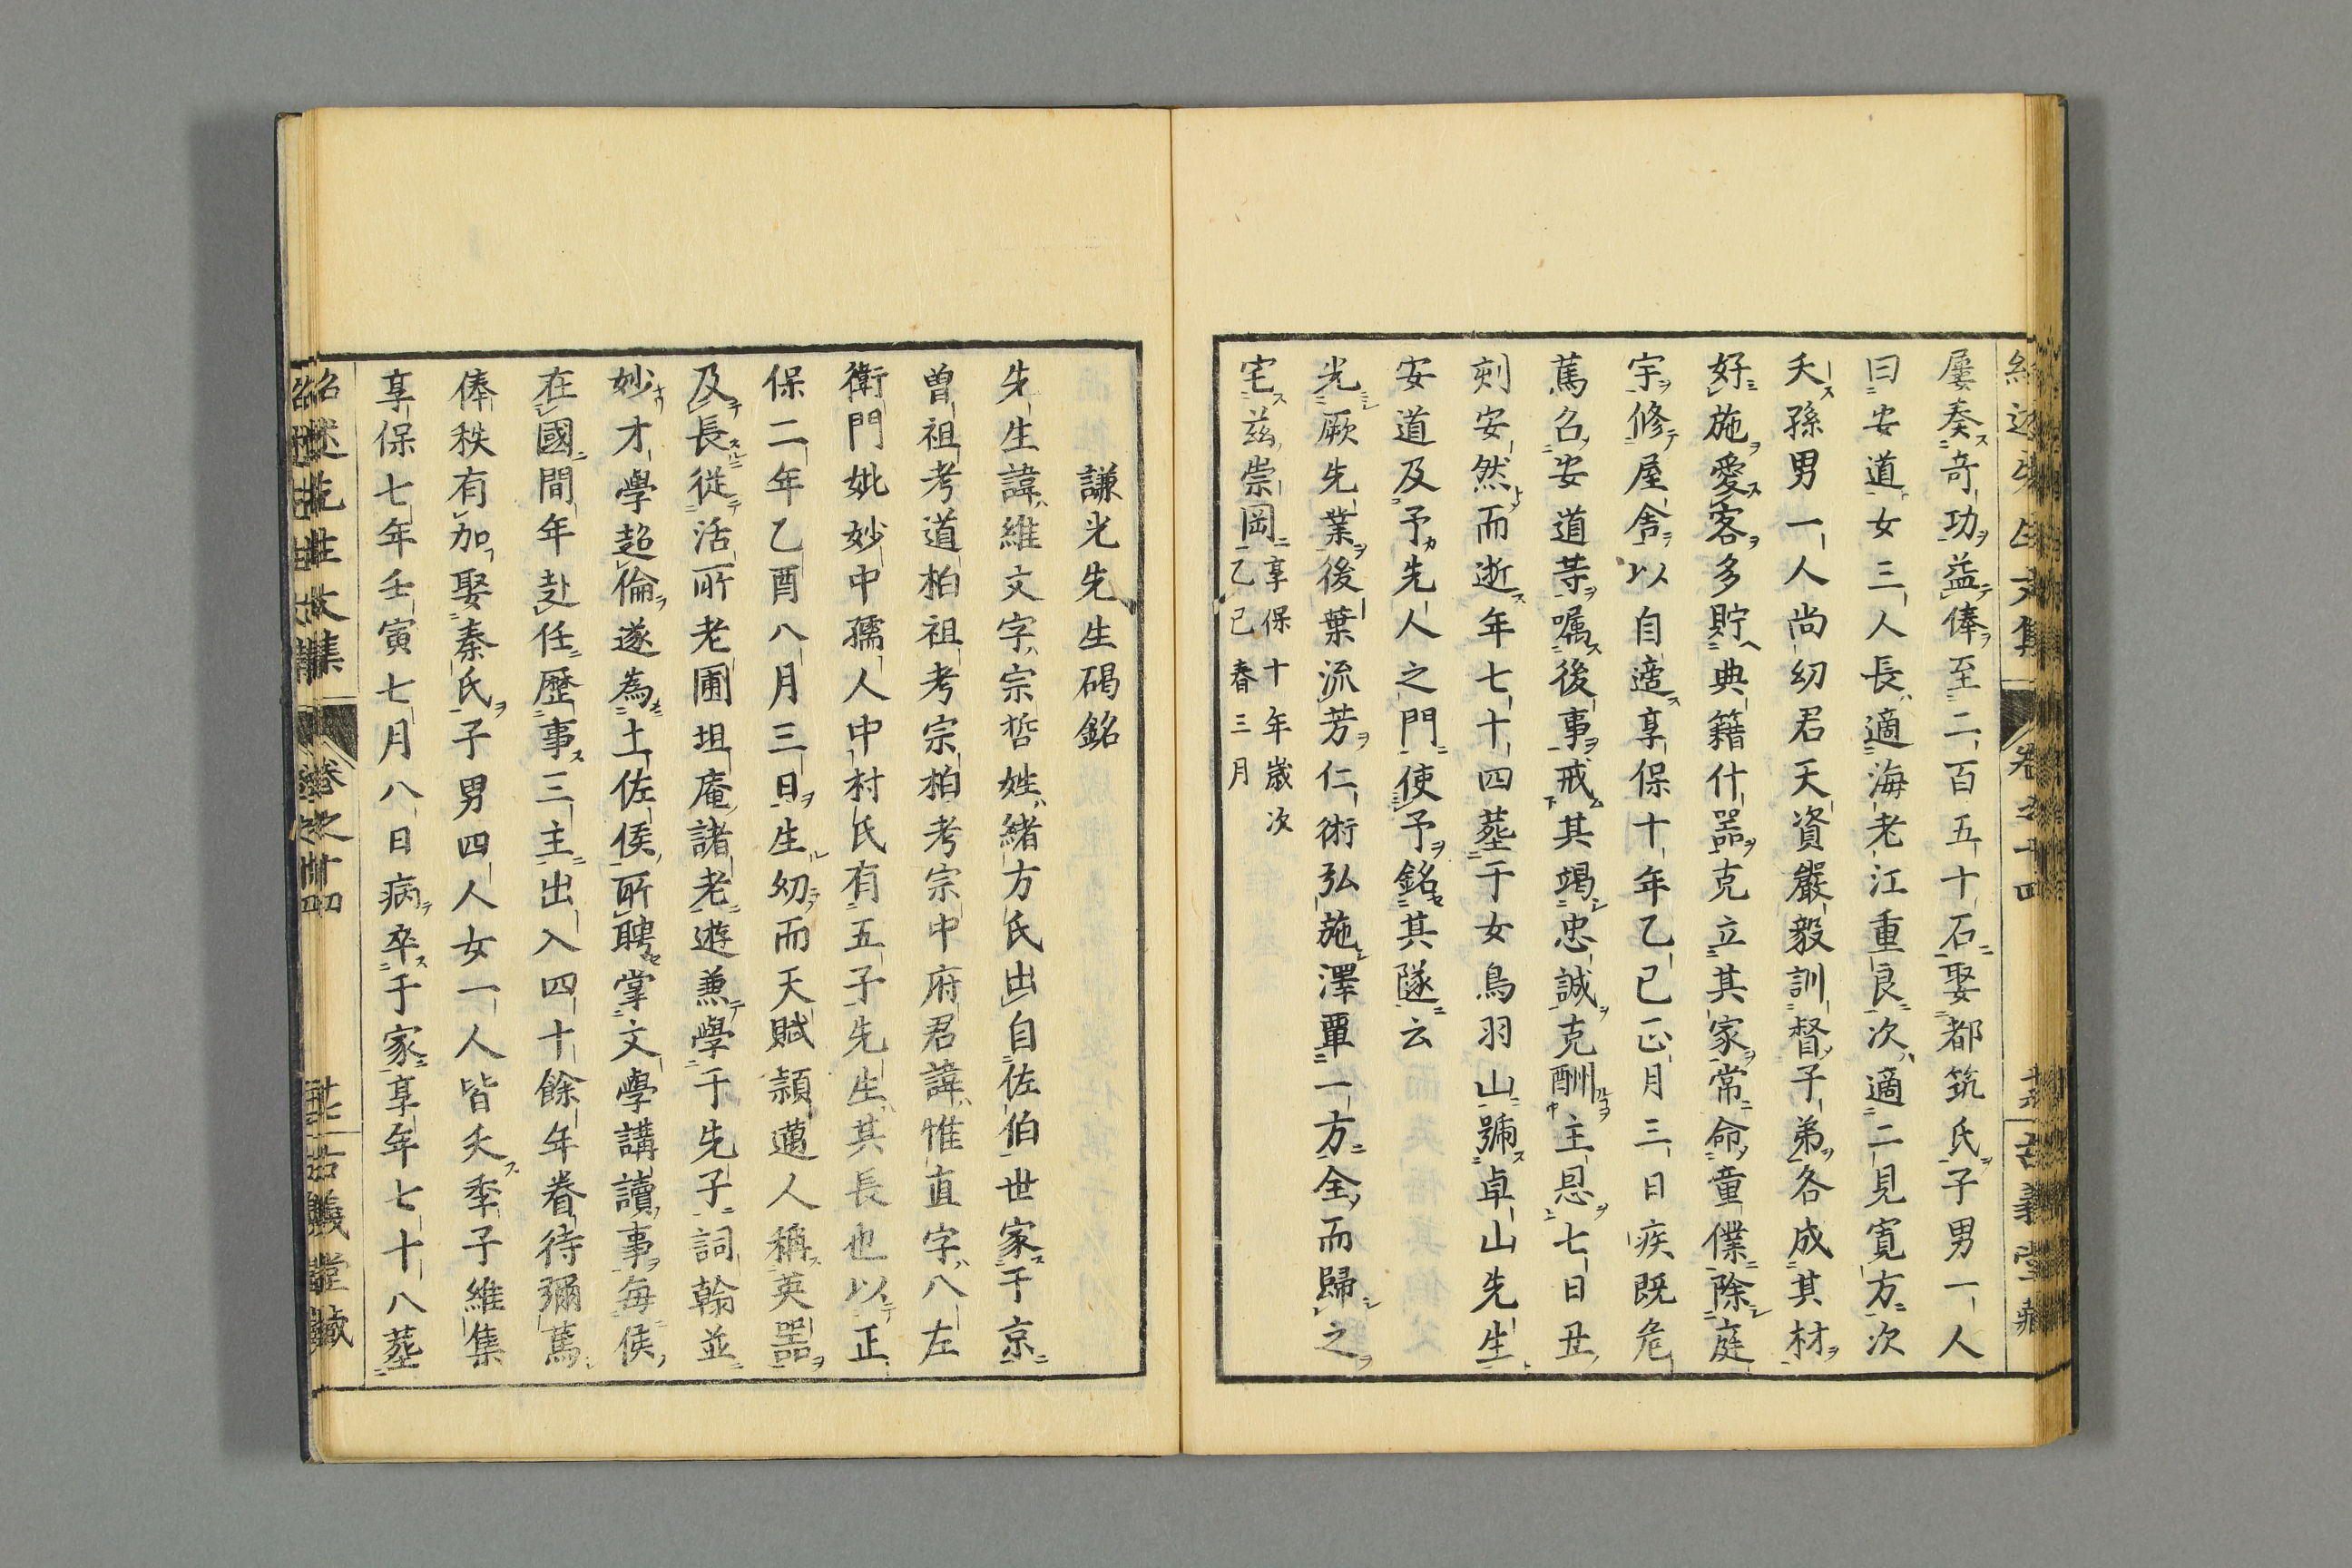 屢奏奇功益俸至二百五十石娶都筑氏子男一人
曰安道女三人長適海老江重良次適二見寛方次
夭孫男一人尚幼君天資嚴毅訓督子弟各成其材
好施愛客多貯典籍什器克立其家常命童僕除庭
宇修屋舎以自適享保十年乙巳正月三日疾既危
篤召安道等嘱後事戒其竭忠誠克酬主恩七日丑
刻安然而逝年七十四葬于女鳥羽山號卓山先生
安道及予先人之門使予銘其隧云
光厥先業後葉流芳仁術弘施澤覃一方全而歸之
宅茲崇岡
享保十年歳次
乙巳春三月
謙光先生碣銘
先生諱維文字宗哲姓緒方氏出自佐伯世家于京
曽祖考道柏祖考宗柏考宗中府君諱惟直字八左
衛門妣妙中孺人中村氏有五子先生其長也以正
保二年乙酉八月三日生幼而天賦頴邁人稱英器
及長從活所老圃坦庵諸老遊兼學于先子詞翰並
妙才學超倫遂為土佐侯所聘掌文學講讀事毎侯
在國間年赴任歴事三主出入四十餘年眷待彌篤
俸秩有加娶秦氏子男四人女一人皆夭季子維集
享保七年壬寅七月八日病卒于家享年七十八葬
紹述先生文集 卷之十四 古義堂藏